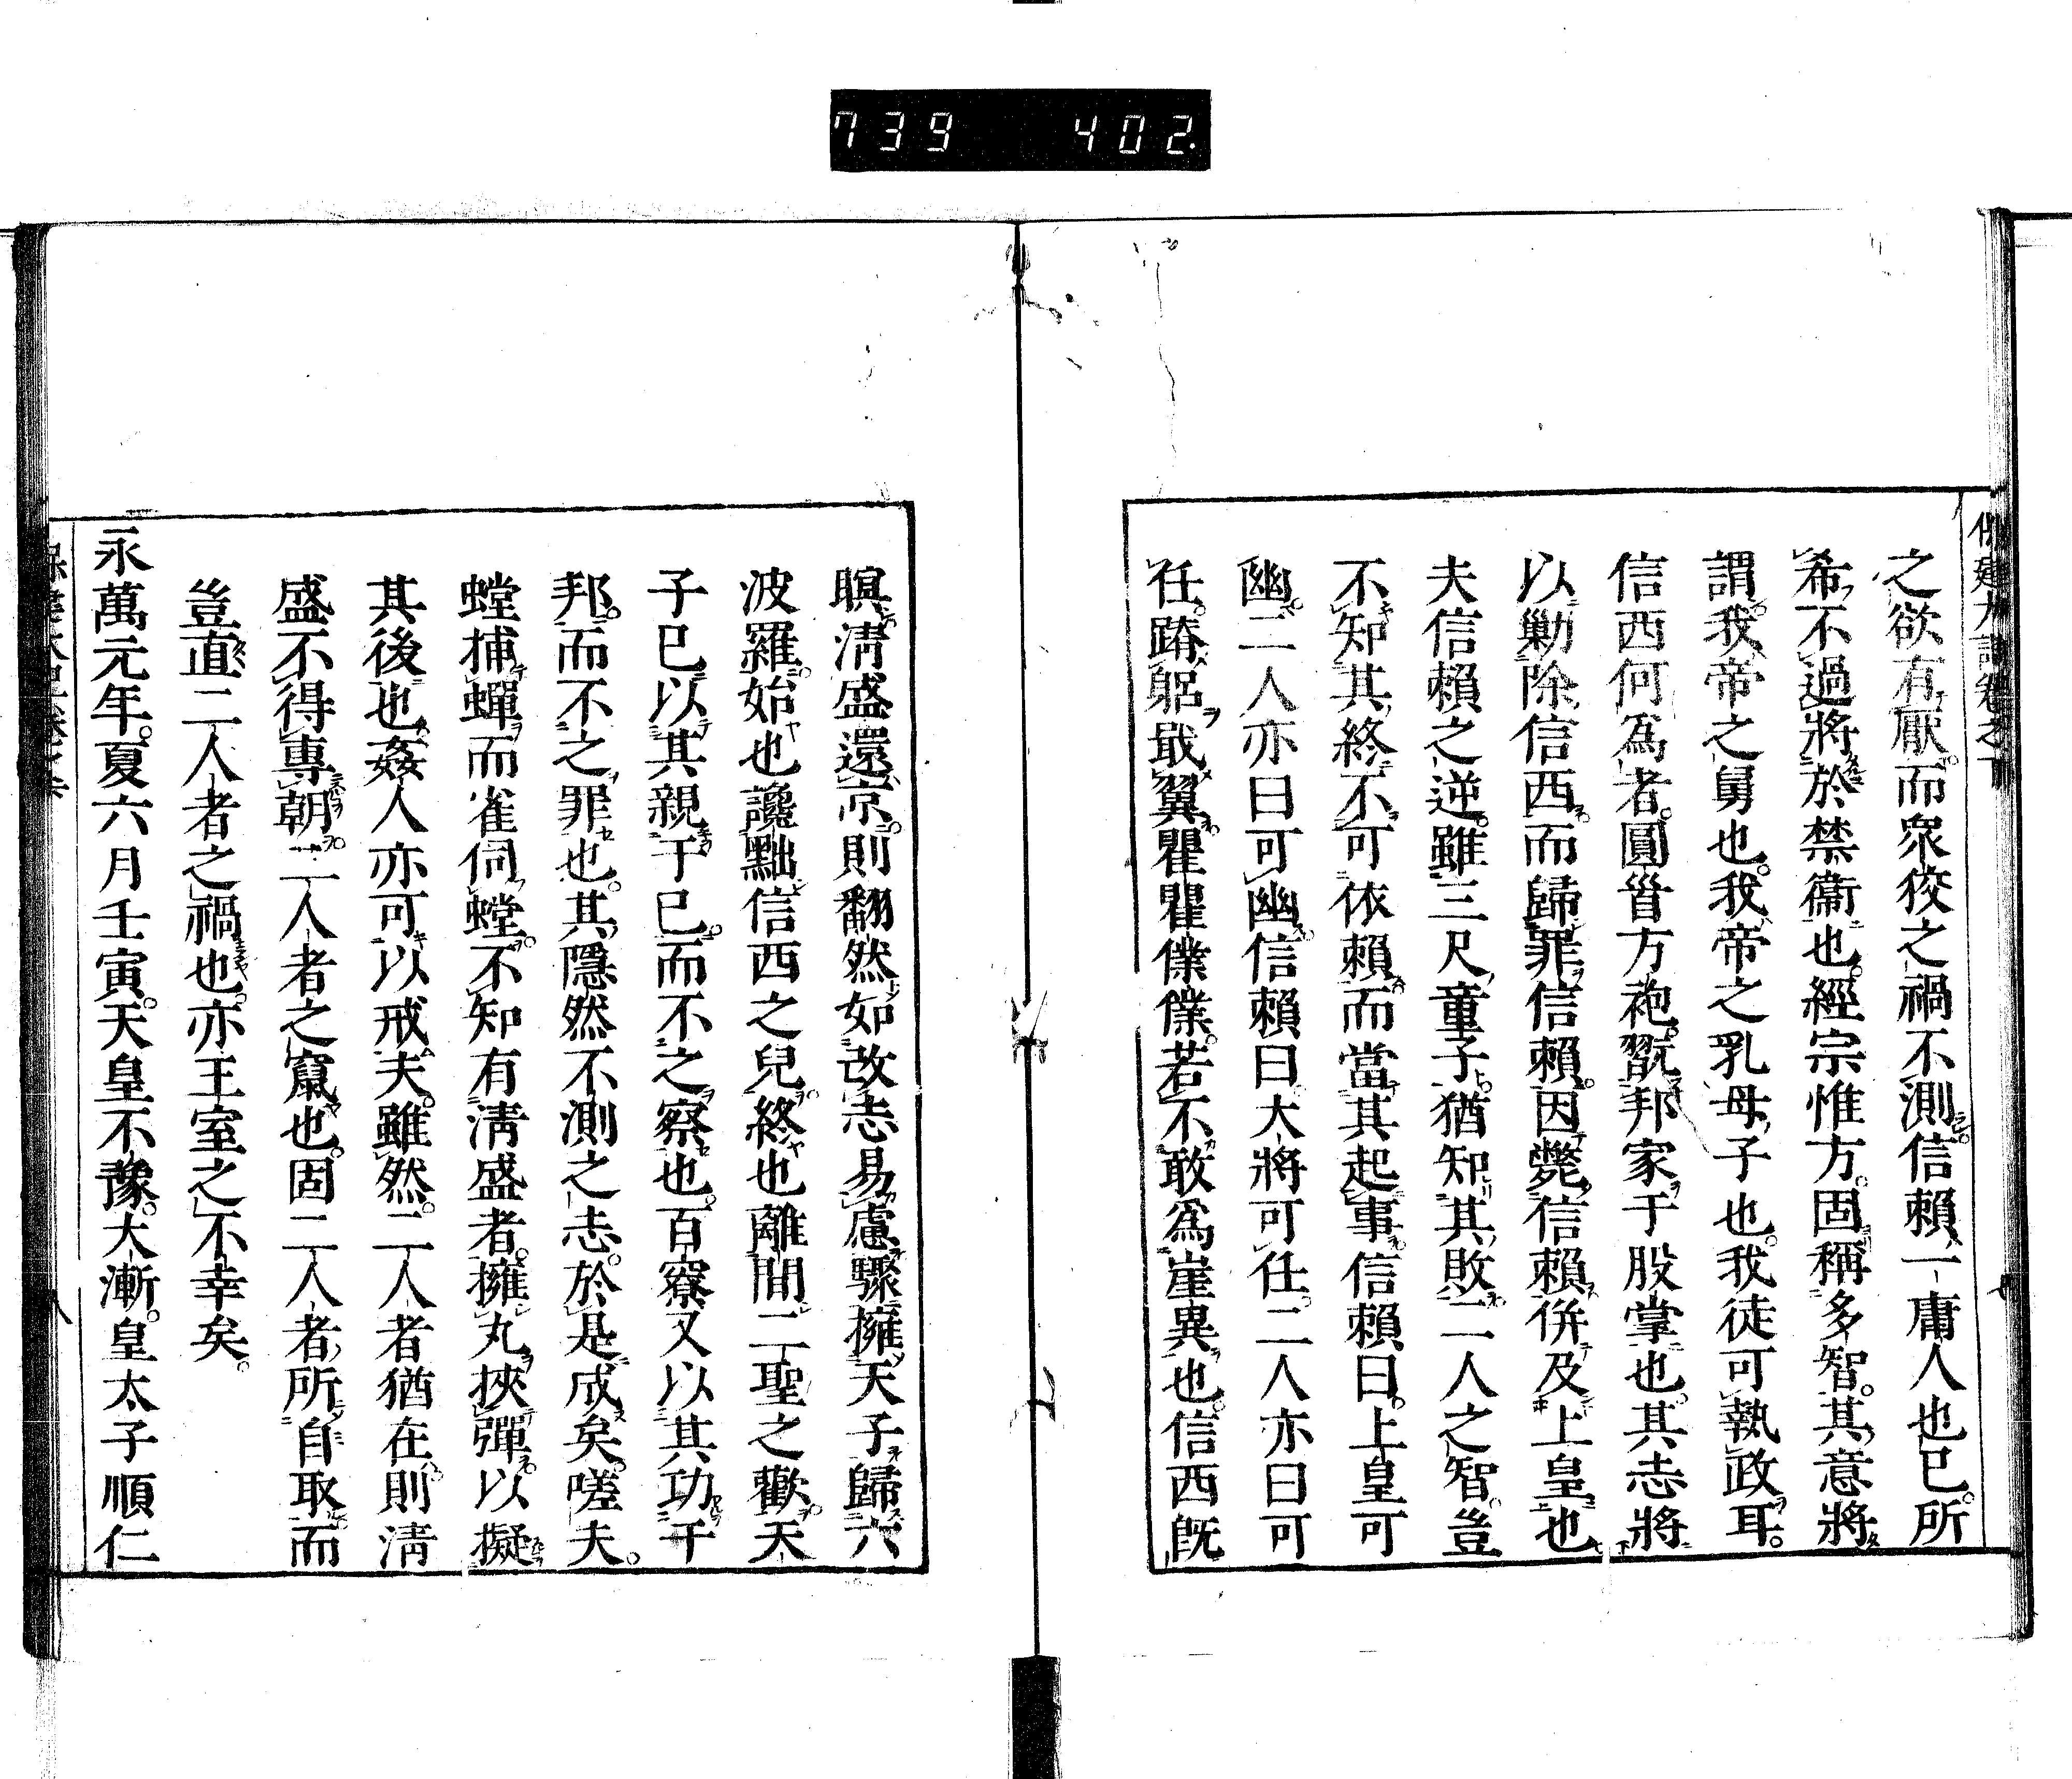 739 402
之欲有厭。而衆狡之禍不測。信賴一庸人也已。所
希不過將於禁衞也。經宗惟方。固稱多智。其意將
謂。我帝之舅也。我帝之乳母子也。我徒可執政耳。
信西何爲者。圓首方袍。翫邦家于股掌也。其志將
以勦除信西。而歸罪信賴。因斃信賴。倂及上皇也。
夫信賴之逆。雖三尺童子。猶知其敗。二人之智。豈
不知其終不可依賴。而當其起事。信賴曰。上皇可
幽。二人亦曰可幽。信賴曰大將可任。二人亦曰可
任。蹐躬戢翼。瞿瞿僕僕。若不敢爲崖異也。信西既
瞑。淸盛還京。則翻然如改志易慮。驟擁天子歸六
波羅。始也讒黜信西之兒。終也離間二聖之歡。天
子已以其親于已。而不之察也。百寮又以其功于
邦。而不之罪也。其隱然不測之志。於是成矣。嗟夫。
螳捕蟬而雀伺螳。不知有淸盛者。擁丸挾彈。以擬
其後也。姦人亦可以戒夫。雖然。二人者猶在。則淸
盛不得專朝。二人者之竄也。固二人者所自取。而
豈直二人者之禍也。亦王室之不幸矣。
永萬元年。夏六月壬寅。天皇不豫。大漸。皇太子順仁